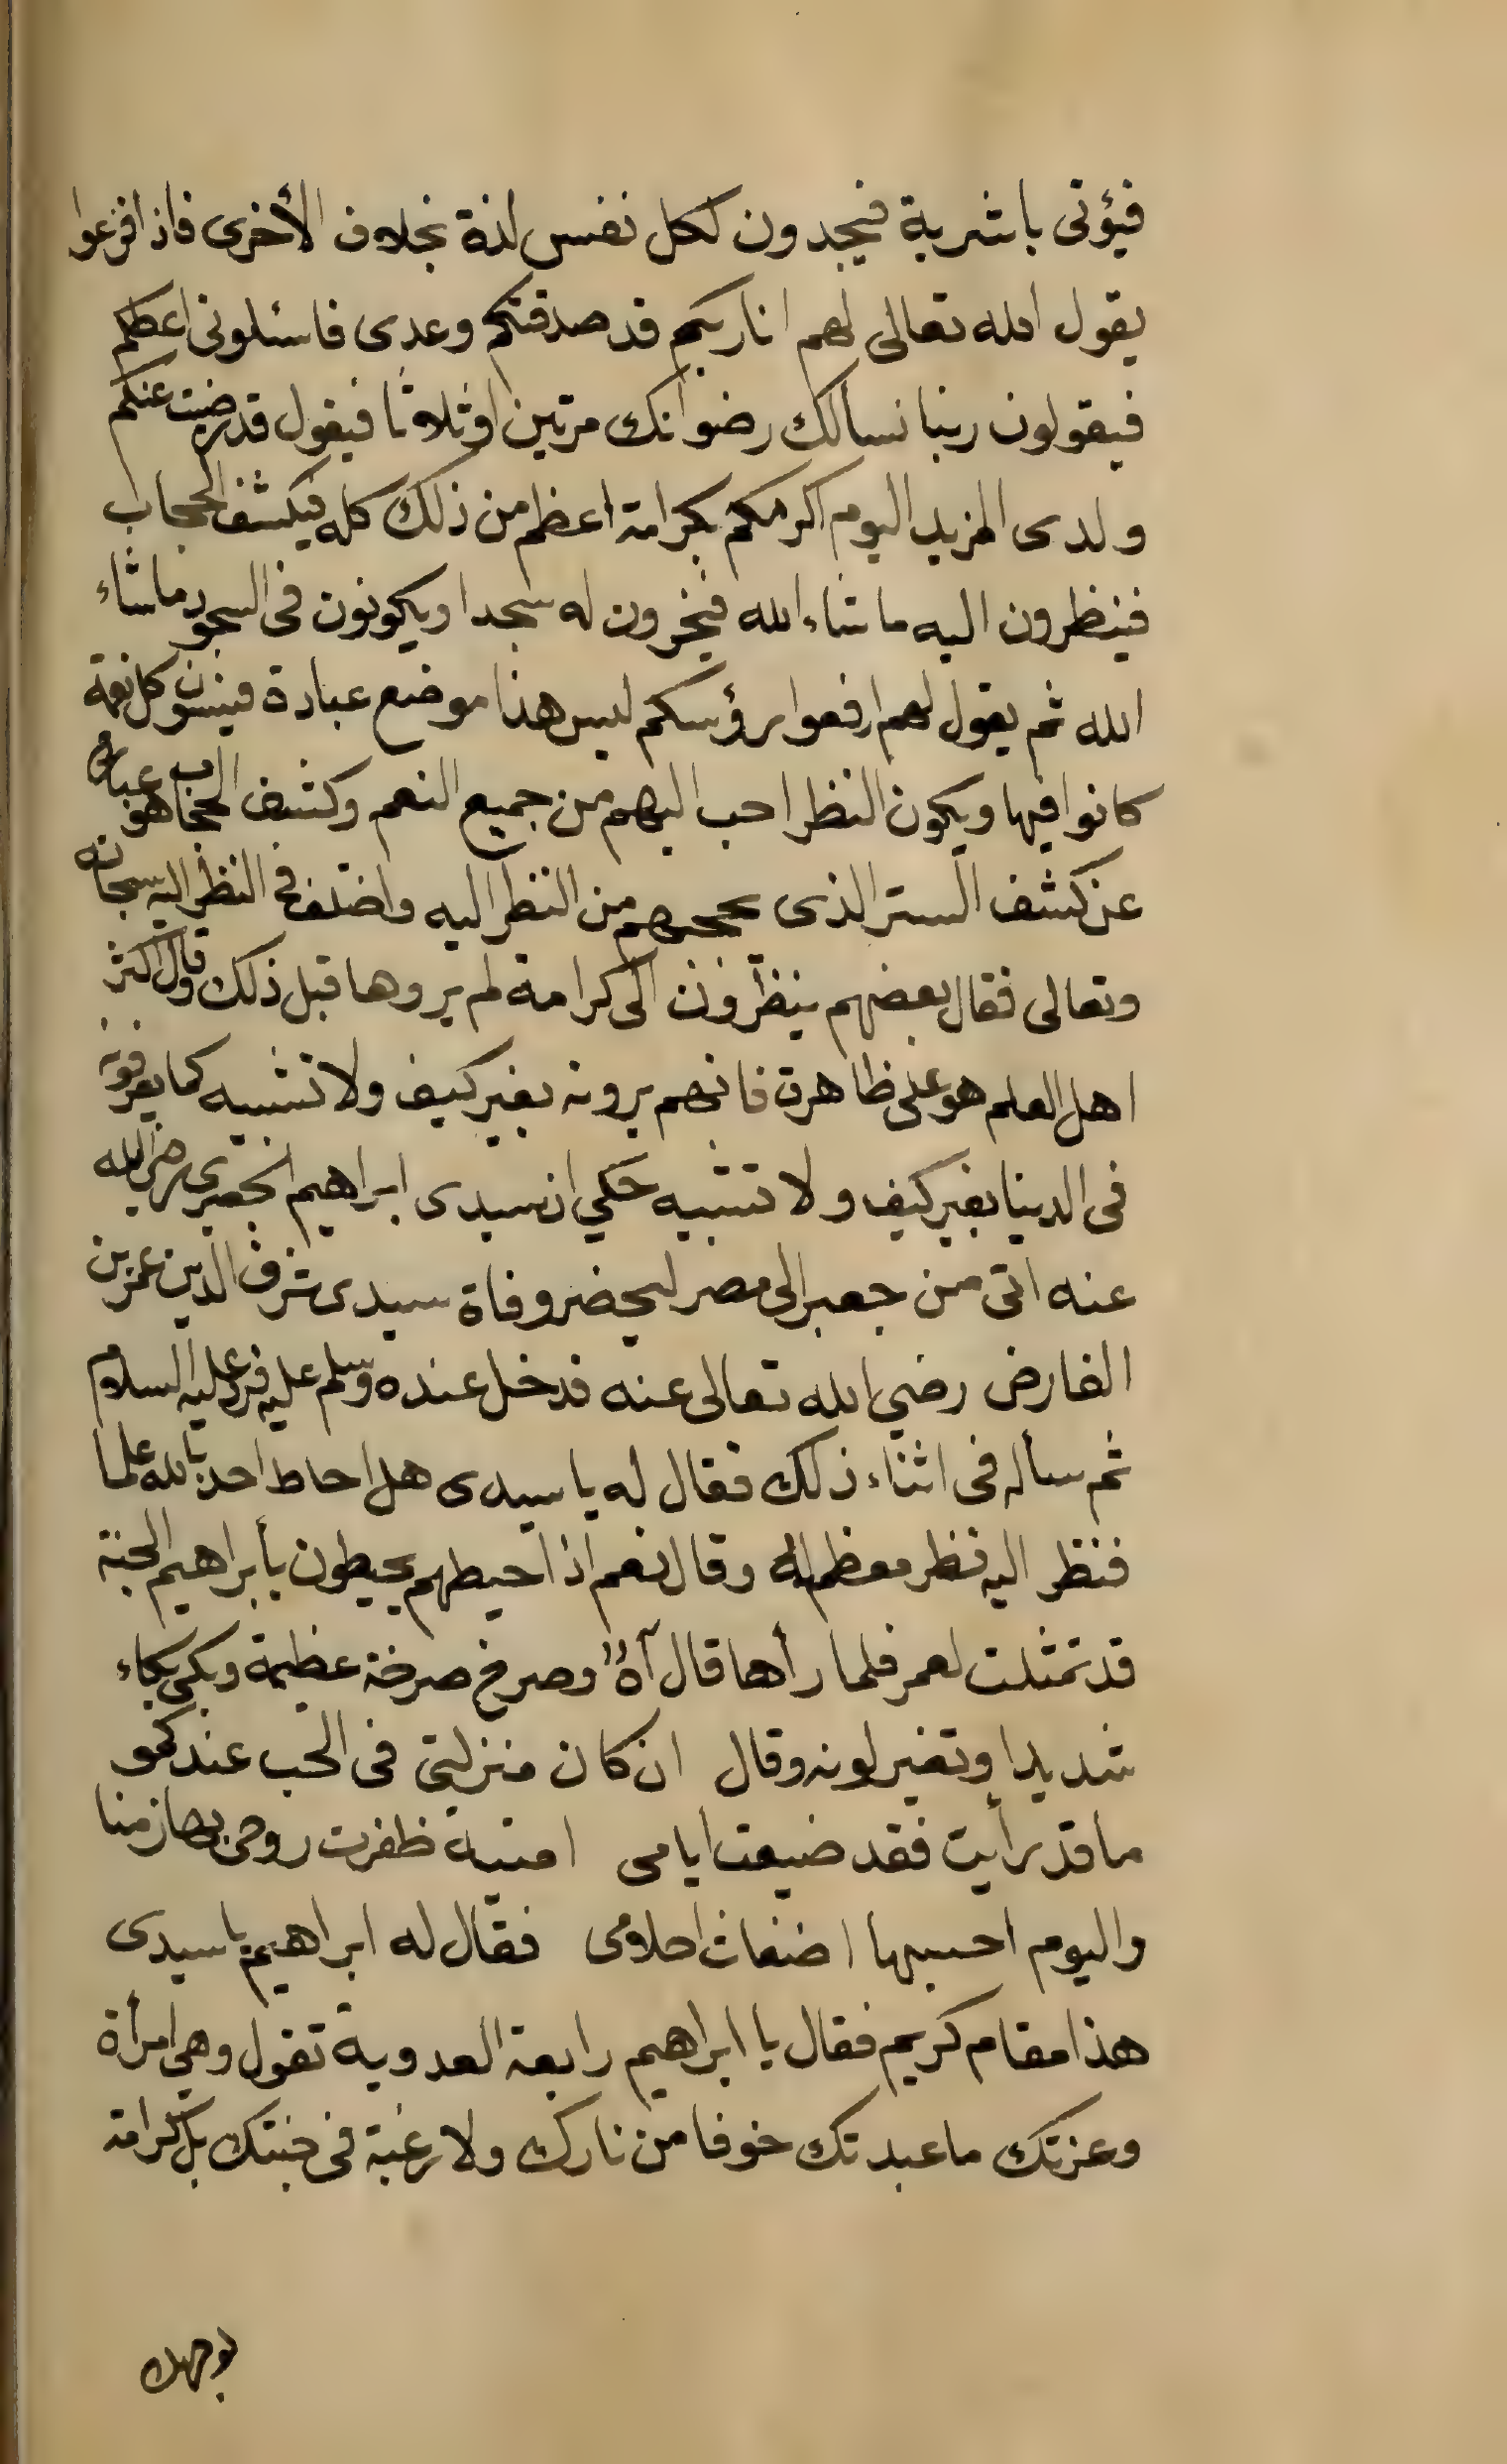 فيؤتى باشربة فيجدون لكل نفس لذة بخلاف الأخرى فاذا فزعوا
يقول الله تعالى لهم انا ربكم قد صدقتكم وعدى فاسئلونى اعطكم
فيقولون ربنا نسألك رضوانك مرتين او ثلاثا فيقول قد رضيت عنكم
ولدى المزيد اليوم اكرمكم بكرامة اعظم من ذلك كله فيكشف الحجاب
فينظرون اليه ما شاء الله فيخرون له سجدا ويكونون فى السجود ما شاء
الله ثم يقول لهم ارفعوا رؤسكم ليس هذا موضع عبادة فينسون كل نعمة
كانوا فيها ويكون النظر احب اليهم من جميع النعم وكشف الحجاب هو عبارة
عن كشف الستر الذى يحجبهم من النظر اليه واختلف فى النظر اليه سبحانه
وتعالى فقال بعضهم ينظرون الى كرامة لم يروها قبل ذلك وقال اكثر
اهل العلم هو على ظاهرة فانهم يرونه بغير كيف ولا تشبيه كما يعرفونه
فى الدينا بغير كيف ولا تشبيه حكي ان سيدى ابراهيم الجعبرى رضى الله
عنه اتى من جعبر الى مصر ليحضر وفاة سيدى شرف الدين عمر بن
الفارض رضي الله تعالى عنه فدخل عنده وسلم عليه فرد عليه السلام
ثم سأله فى اثناء ذلك فقال له يا سيدى هل احاط احد بالله علما
فنظر اليه نظر معظم له وقال نعم اذا حيطهم يحيطون يأبراهيم الجنة
قد تمثلت لعمر فلما رأها قال آهٌ وصرخ صرخة عظيمة وبكى بكاء
شديدا وتغير لونه وقال ان كان منزلتي فى الحب عندكمو
ما قد رأيت فقد ضيعت ايامى امنية ظفرت روحى بها زمنا
واليوم احسبها اضغاث احلامى فقال له ابراهيم يا سيدى
هذا مقام كريم فقال يا ابراهيم رابعة العدوية تقول وهي امرأة
وعزتك ما عبدتك خوفا من نارك ولا رغبة فى جنتك بل كرامة
لوجهك